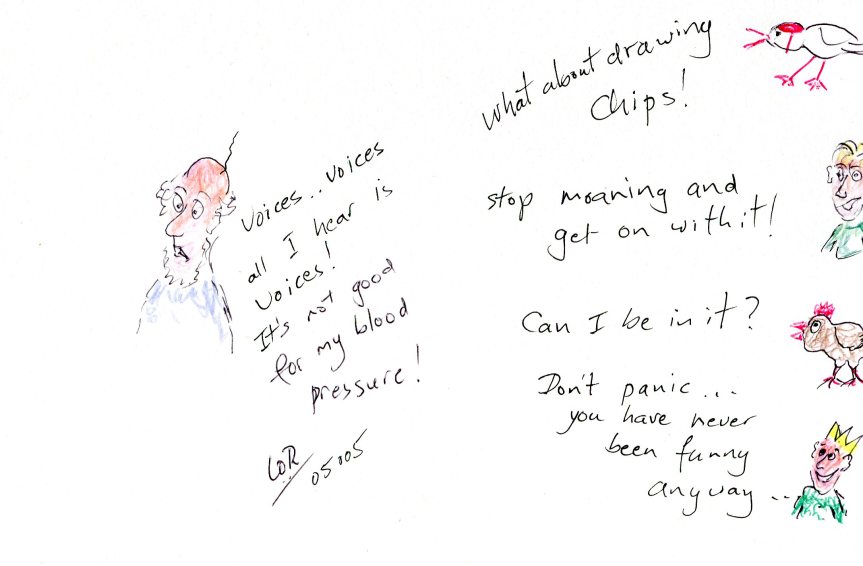 voices...voices
all I hear is
voices!
It's not good
for my blood
pressure!
LOR
05005
what about drawing
chips!
stop moaning and
get on with it!
Can I be in it?
Don't panic...
you have never
been funny
anyway...